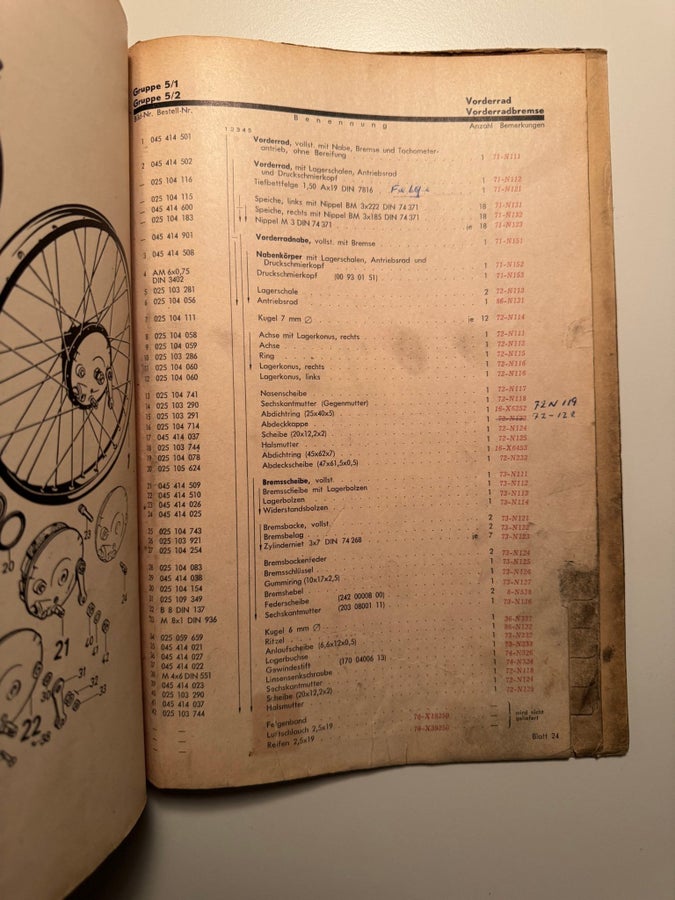 Gruppe 5/1
Gruppe 5/2
Vorderrad
Vorderradbremse
Bild-Nr. Bestell-Nr. Benennung Anzahl Bemerkungen
1 2 3 4 5
1 045 414 501 Vorderrad, vollst. mit Nabe, Bremse und Tachometer-
antrieb, ohne Bereifung 1 71-N111
2 045 414 502 Vorderrad, mit Lagerschalen, Antriebsrad
und Druckschmierkopf 1 71-N112
— 025 104 116 Tiefbettfelge 1,50 Ax19 DIN 7816 Felge 1 71-N121
— 025 104 115 Speiche, links mit Nippel BM 3x222 DIN 74 371 18 71-N131
— 045 414 600 Speiche, rechts mit Nippel BM 3x185 DIN 74 371 18 71-N132
— 025 104 183 Nippel M 3 DIN 74 371 je 18 71-N133
— 045 414 901 Vorderradnabe, vollst. mit Bremse 1 71-N151
3 045 414 508 Nabenkörper mit Lagerschalen, Antriebsrad und
Druckschmierkopf 1 71-N152
4 AM 6x0,75
DIN 3402 Druckschmierkopf (00 93 01 51) 1 71-N153
5 025 103 281 Lagerschale 2 72-N113
6 025 104 056 Antriebsrad 1 86-N131
7 025 104 111 Kugel 7 mm ∅ je 12 72-N114
8 025 104 058 Achse mit Lagerkonus, rechts 1 72-N111
9 025 104 059 Achse 1 72-N112
10 025 103 286 Ring 1 72-N115
11 025 104 060 Lagerkonus, rechts 1 72-N116
12 025 104 060 Lagerkonus, links 1 72-N116
13 025 104 741 Nasenscheibe 1 72-N117
14 025 103 290 Sechskantmutter (Gegenmutter) 1 72-N118
15 025 103 291 Abdichtring (25x40x5) 1 16-X6252 72N 119
16 025 104 714 Abdeckkappe 1 72-122
17 045 414 037 Scheibe (20x12,2x2) 1 72-N124
18 025 103 744 Halsmutter 1 72-N125
19 025 104 078 Abdichtring (45x62x7) 1 16-X6453
20 025 105 624 Abdeckscheibe (47x61,5x0,5) 1 72-N232
21 045 414 509 Bremsscheibe, vollst. 1 73-N111
22 045 414 510 Bremsscheibe mit Lagerbolzen 1 73-N112
23 045 414 026 Lagerbolzen 1 73-N113
24 045 414 025 Widerstandsbolzen 1 73-N114
25 025 104 743 Bremsbacke, vollst. 2 73-N121
26 025 103 921 Bremsbelag 2 73-N122
27 025 104 254 Zylinderniet 3x7 DIN 74 268 je 7 73-N123
28 025 104 083 Bremsbackenfeder 2 73-N124
29 045 414 038 Bremsschlüssel 1 73-N125
30 025 104 154 Gummiring (10x17x2,5) 1 73-N126
31 025 109 349 Bremshebel 1 73-N127
32 B 8 DIN 137 Federscheibe (242 00008 00) 2 8-N538
33 M 8x1 DIN 936 Sechskantmutter (203 08001 11) 1 73-N128
34 025 059 659 Kugel 6 mm ∅ 1 36-N337
35 045 414 021 Ritzel 1 86-N132
36 045 414 027 Anlaufscheibe (6,6x12x0,5) 1
37 045 414 022 Lagerbuchse 1
38 M 4x6 DIN 551 Gewindestift (170 04006 13) 1
39 045 414 023 Linsensenkschraube 1
40 025 103 290 Sechskantmutter 1 72-N118
41 045 414 037 Scheibe (20x12,2x2) 1 72-N124
42 025 103 744 Halsmutter 1 72-N125
— Felgenband —
— Luftschlauch 2,5x19 76-X18250 — wird nicht
— Reifen 2,5x19 76-X39250 — geliefert
Blatt 24
20
24
21
40
41
42
31
32
33
22
38